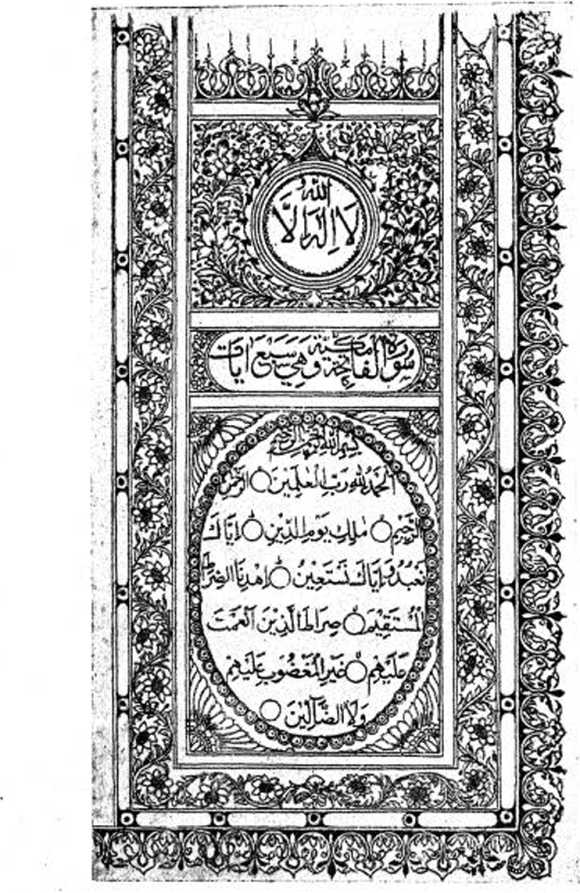 لا اله الا الله
سورة الفاتحة مكية وهي سبع ايات
بسم الله الرحمن الرحيم
الحمد لله رب العلمين ○ الرحمن
الرحيم ○ ملك يوم الدين ○ اياك
نعبد واياك نستعين ○ اهدنا الصراط
المستقيم ○ صراط الذين انعمت
عليهم ○ غير المغضوب عليهم
ولا الضالين ○